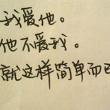 我爱他。
他不爱我。
就这样简单而已